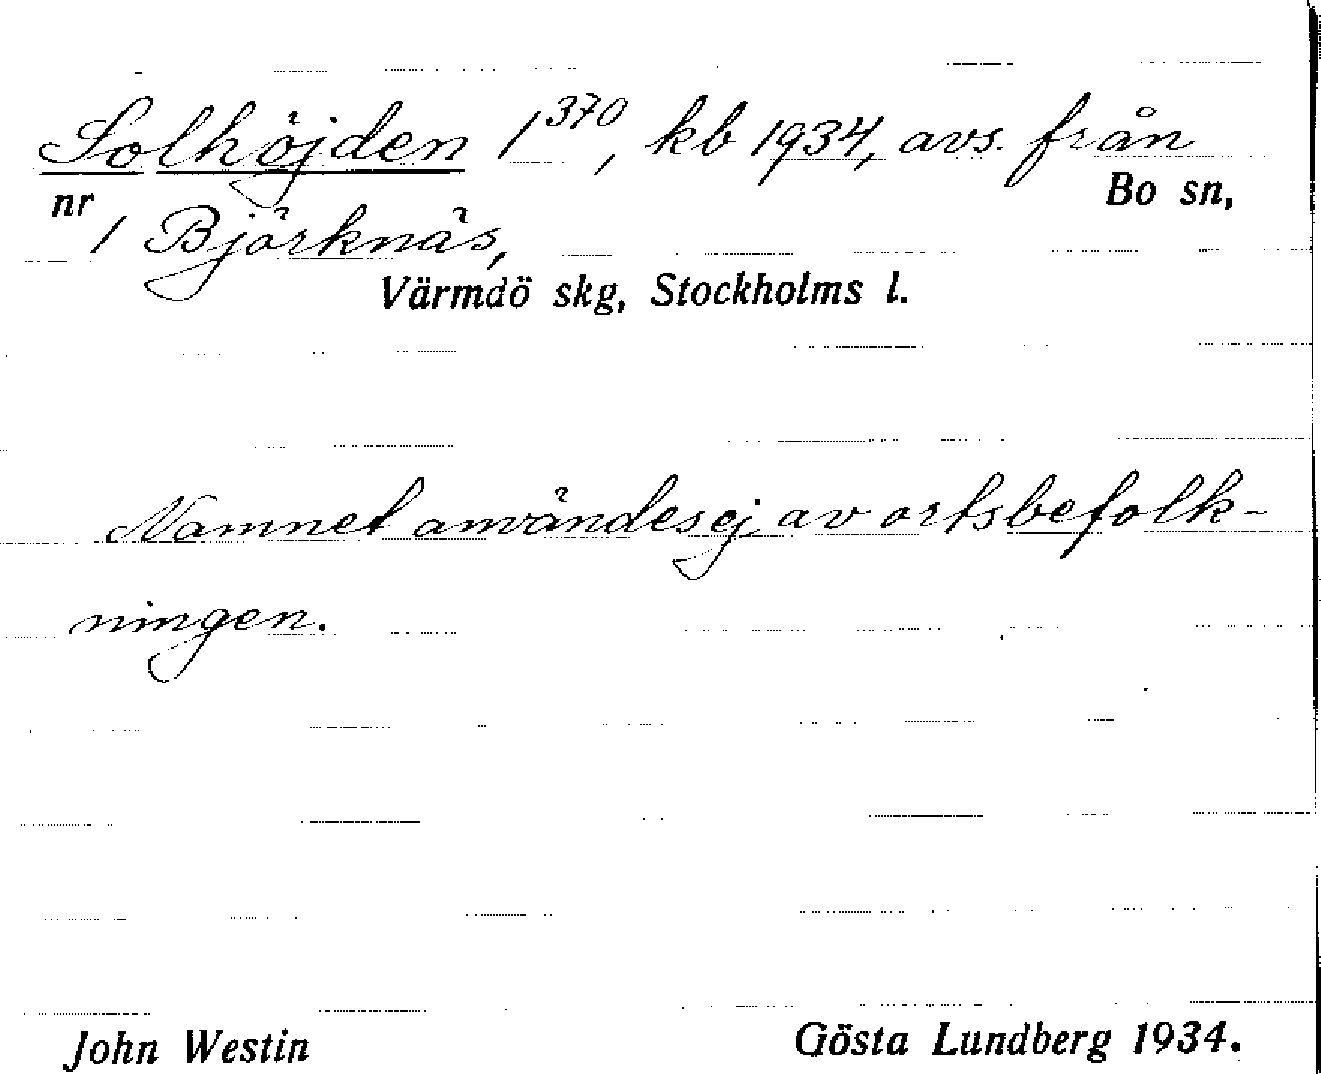 Solhöjden 1³⁷⁰, kb 1934, avs. från
Bo sn,
nr 1 Björknäs,
Värmdö skg, Stockholms l.
Namnet användes ej av ortsbefolk-
ningen.
John Westin Gösta Lundberg 1934.